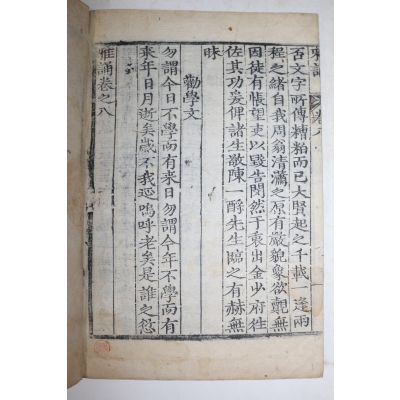 雅誦 卷八
否文字所傳糟粕而已大賢起之千載一逢兩
程之緒自我周翁清瀟之原有嚴貌象欲覿無
因徒有悵望吏以毁告閔然于衷出金少府徃
佐其功爰俾諸生敬陳一酹先生臨之有赫無
昧
勸學文
勿謂今日不學而有来日勿謂今年不學而有
来年日月逝矣歲不我延嗚呼老矣是誰之愆
雅誦卷之八